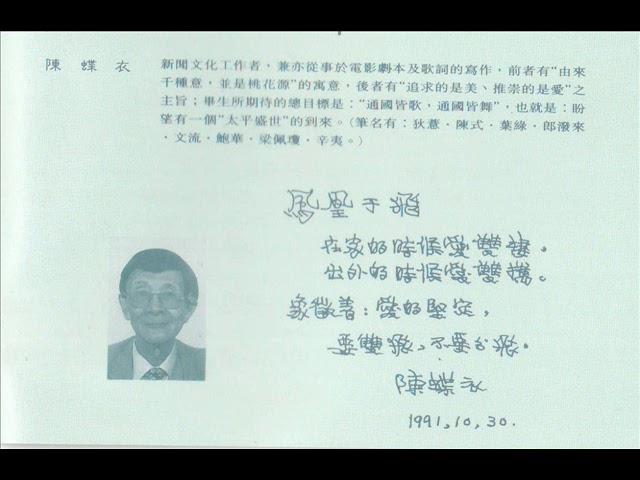 陳蝶衣
新聞文化工作者，兼亦從事於電影劇本及歌詞的寫作，前者有“由來
千種意，並是桃花源”的寓意，後者有“追求的是美、推崇的是愛”之
主旨；畢生所期待的總目標是：“通國皆歌，通國皆舞”，也就是：盼
望有一個“太平盛世”的到來。(筆名有：狄薏．陳式．葉綠．郎潑來
．文流．鮑華．梁佩瓊．辛夷。)
鳳凰于飛
在家的時候愛雙棲。
出外的時候愛雙攜。
象徵着：愛的堅定，
要雙飛，不要分飛。
陳蝶衣
1991,10,30.